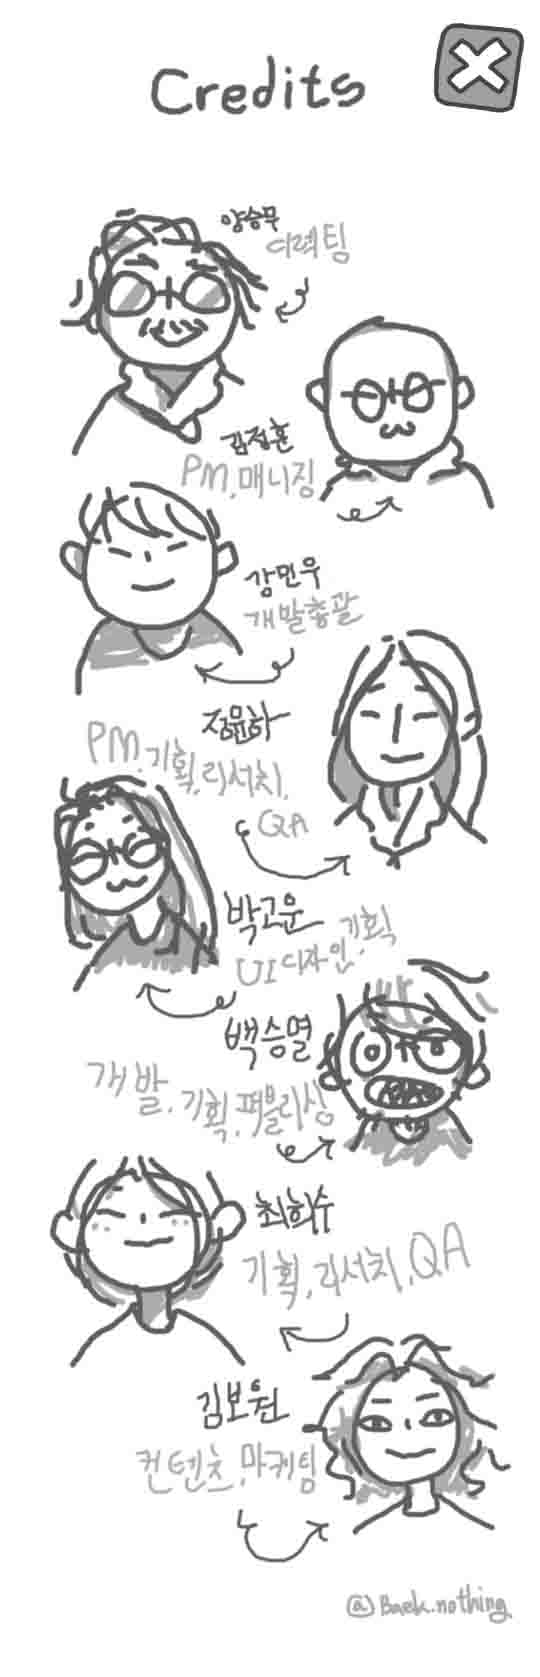 Credits
양승무
이력팀
김정훈
PM, 매니징
강민우
개발총괄
정윤하
PM, 기획, 리서치,
QA
박고운
UI디자인, 기획
백승열
개발, 기획, 퍼블리싱
최희수
기획, 리서치, QA
김보원
컨텐츠, 마케팅
@Baek.nothing